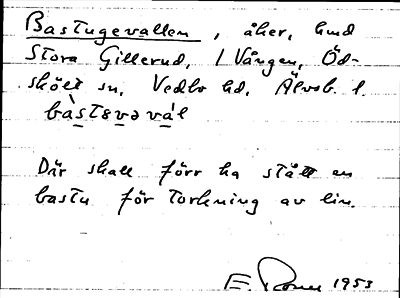 Bastugevallen, åker, hmd
Stora Gillerud, I Vången, Öd-
skölt sn, Vedbo hd, Älvsb. l.
bàstɵvəvál
Där skall förr ha stått en
bastu för torkning av lin.
E. 1953